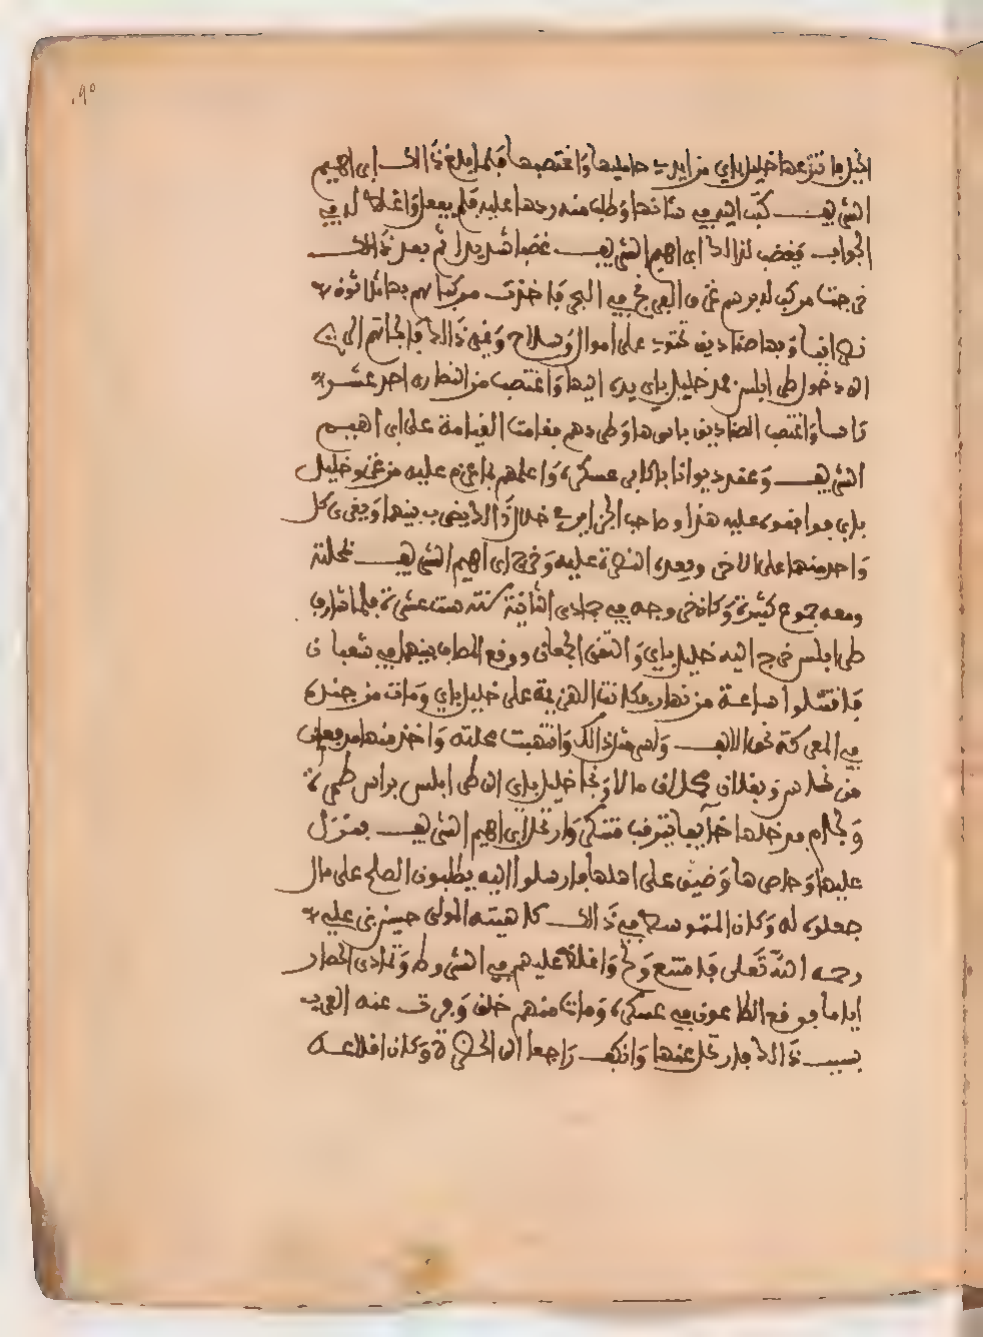 ٩٥
الخيل فانتزعها خليل باي من ايدي حامليها وَاغتصبها فلما بلغ ذَالك ابراهيم
الشريف كتب اليه في شانها وَطلب منه ردها عليه فلم يفعل وَاغلظ له في
الجواب فغضب لذالك ابراهيم الشريف غضبا شديدا ثم بعد ذَالك
خرجت مركب له برسم غزو الفرنج في البحر فاخذت مركبا لهم بها ثلاثون
نصرانيا وَبها صناديق تحتوي على اموال وَسلاح وَغير ذَالك فالجاتهم الريح
الى دخول طرابلس فمد خليل باي يده اليها وَاغتصب من النصارى احد عشر
رَاسا وَاغتصب الصناديق باسرها وَطردهم فقامت القيامة على ابراهيم
الشريف وَعقد ديوانا باكابر عسكره وَاعلمهم بما عزم عليه من غزو خليل
باي فوافقوه عليه هذا وصاحب الجزاير في خلال ذَالك يضرب بينهما وَيغري كل
وَاحد منهما على الاخر ويعده النصرة عليه وَخرج ابراهيم الشريف بمحلته
ومعه جموع كثيرة وَكان خروجه في جمادى الثانية سنة ست عشرة فلما شارف
طرابلس خرج اليه خليل باي وَالتقى الجمعان ووقع المصاف بينهما في شعبان
فاقتتلوا ساعة من نهار فكانت الهزيمة على خليل باي وَمات من جنده
في المعركة نحو الالف وَاسر مثل ذالك وَانتهبت محلته وَاخذ منها مدفعان
من نحاس وَبغلان محملان مالا وَنجا خليل باي الى طرابلس براس طمرة
وَلجام فدخلها خآيفا يترقب وَارتحل ابراهيم الشريف فنزل
عليها وَحاصرها وَضيق على اهلها فارسلوا اليه يطلبون الصلح على مال
جعلوه له وَكان المتوسط في ذَالك كاهيته المولى حسين بن علي
رحمه اللّه تَعلى فامتنع وَلج وَاغلظ عليهم في الشروط وَتمادى الحصار
اياما فوقع الطاعون في عسكره وَمات منهم خلق وَتفرق عنه العرب
بسبب ذَالك فارتحل عنها وَانكف رَاجعا الى الحضرة وَكان اقلاعه